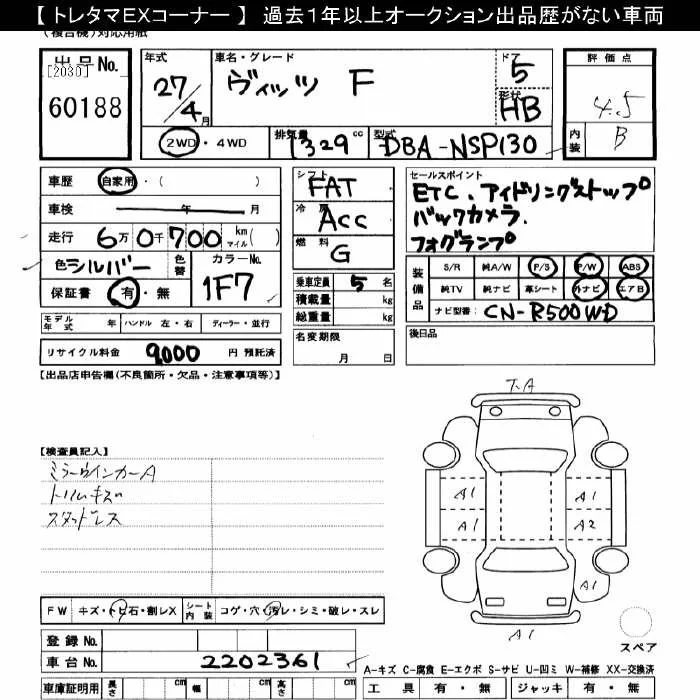 【 トレタマEXコーナー 】 過去1年以上オークション出品歴がない車両
(複合機)対応用紙
出品No.
[2030]
60188
年式
27/4月
車名・グレード
ヴィッツ F
ドア
5
形状
HB
評価点
4.5
内装
B
2WD・4WD
排気量
1329cc
型式
DBA-NSP130
車歴 自家用・( )
車検 年 月
走行 6万0千700 km マイル( )
色 シルバー 色替
カラーNo.
1F7
保証書 有・無
シフト
FAT
冷房
ACC
燃料
G
乗車定員 5 名
積載量 kg
総重量 kg
セールスポイント
ETC、アイドリングストップ
バックカメラ、
フォグランプ
装備品
S/R 純A/W P/S P/W ABS
純TV 純ナビ 革シート 外ナビ エアB
ナビ型番: CN-R500WD
モデル年式 年 ハンドル 左・右 ディーラー・並行
リサイクル料金 9,000 円 預託済
名変期限
月 日
後日品
【出品店申告欄(不良箇所・欠品・注意事項等)】
【検査員記入】
ミラーウインカーA
トリムキズ
スタッドレス
T.A
A1 A1
A1 A2
A1
A1
スペア
FW キズ・トビ石・割レX
シート内装 コゲ・穴・汚レ・シミ・破レ・スレ
登録No.
車台No. 2202361
A-キズ C-腐食 E-エクボ S-サビ U-凹ミ W-補修 XX-交換済
車庫証明用 長さ cm 幅 cm 高さ cm
工具 有・無 ジャッキ 有・無